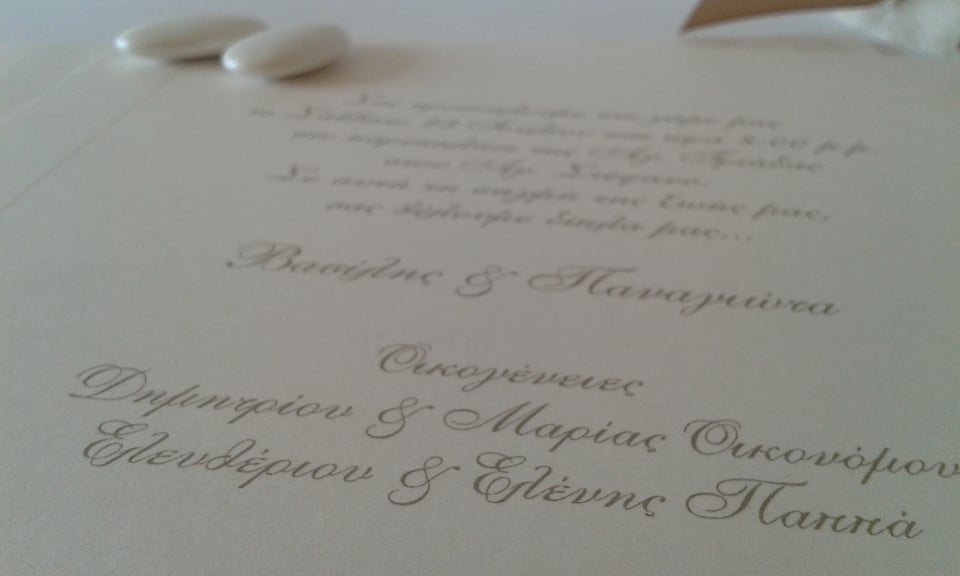 Σας προσκαλούμε στο γάμο μας
το Σάββατο 22 Ιουνίου και ώρα 8.00 μ.μ.
στο παρεκκλήσι της Αγ. Τριάδας
στον Αγ. Στέφανο.
Σε αυτή τη στιγμή της ζωής μας,
σας θέλουμε δίπλα μας...
Βασίλης & Παναγιώτα
Οικογένειες
Δημητρίου & Μαρίας Οικονόμου
Ελευθέριου & Ελένης Παππά